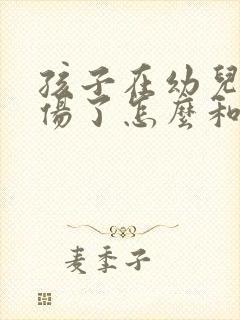 孩子在幼兒
傷了怎麼和
麦季子